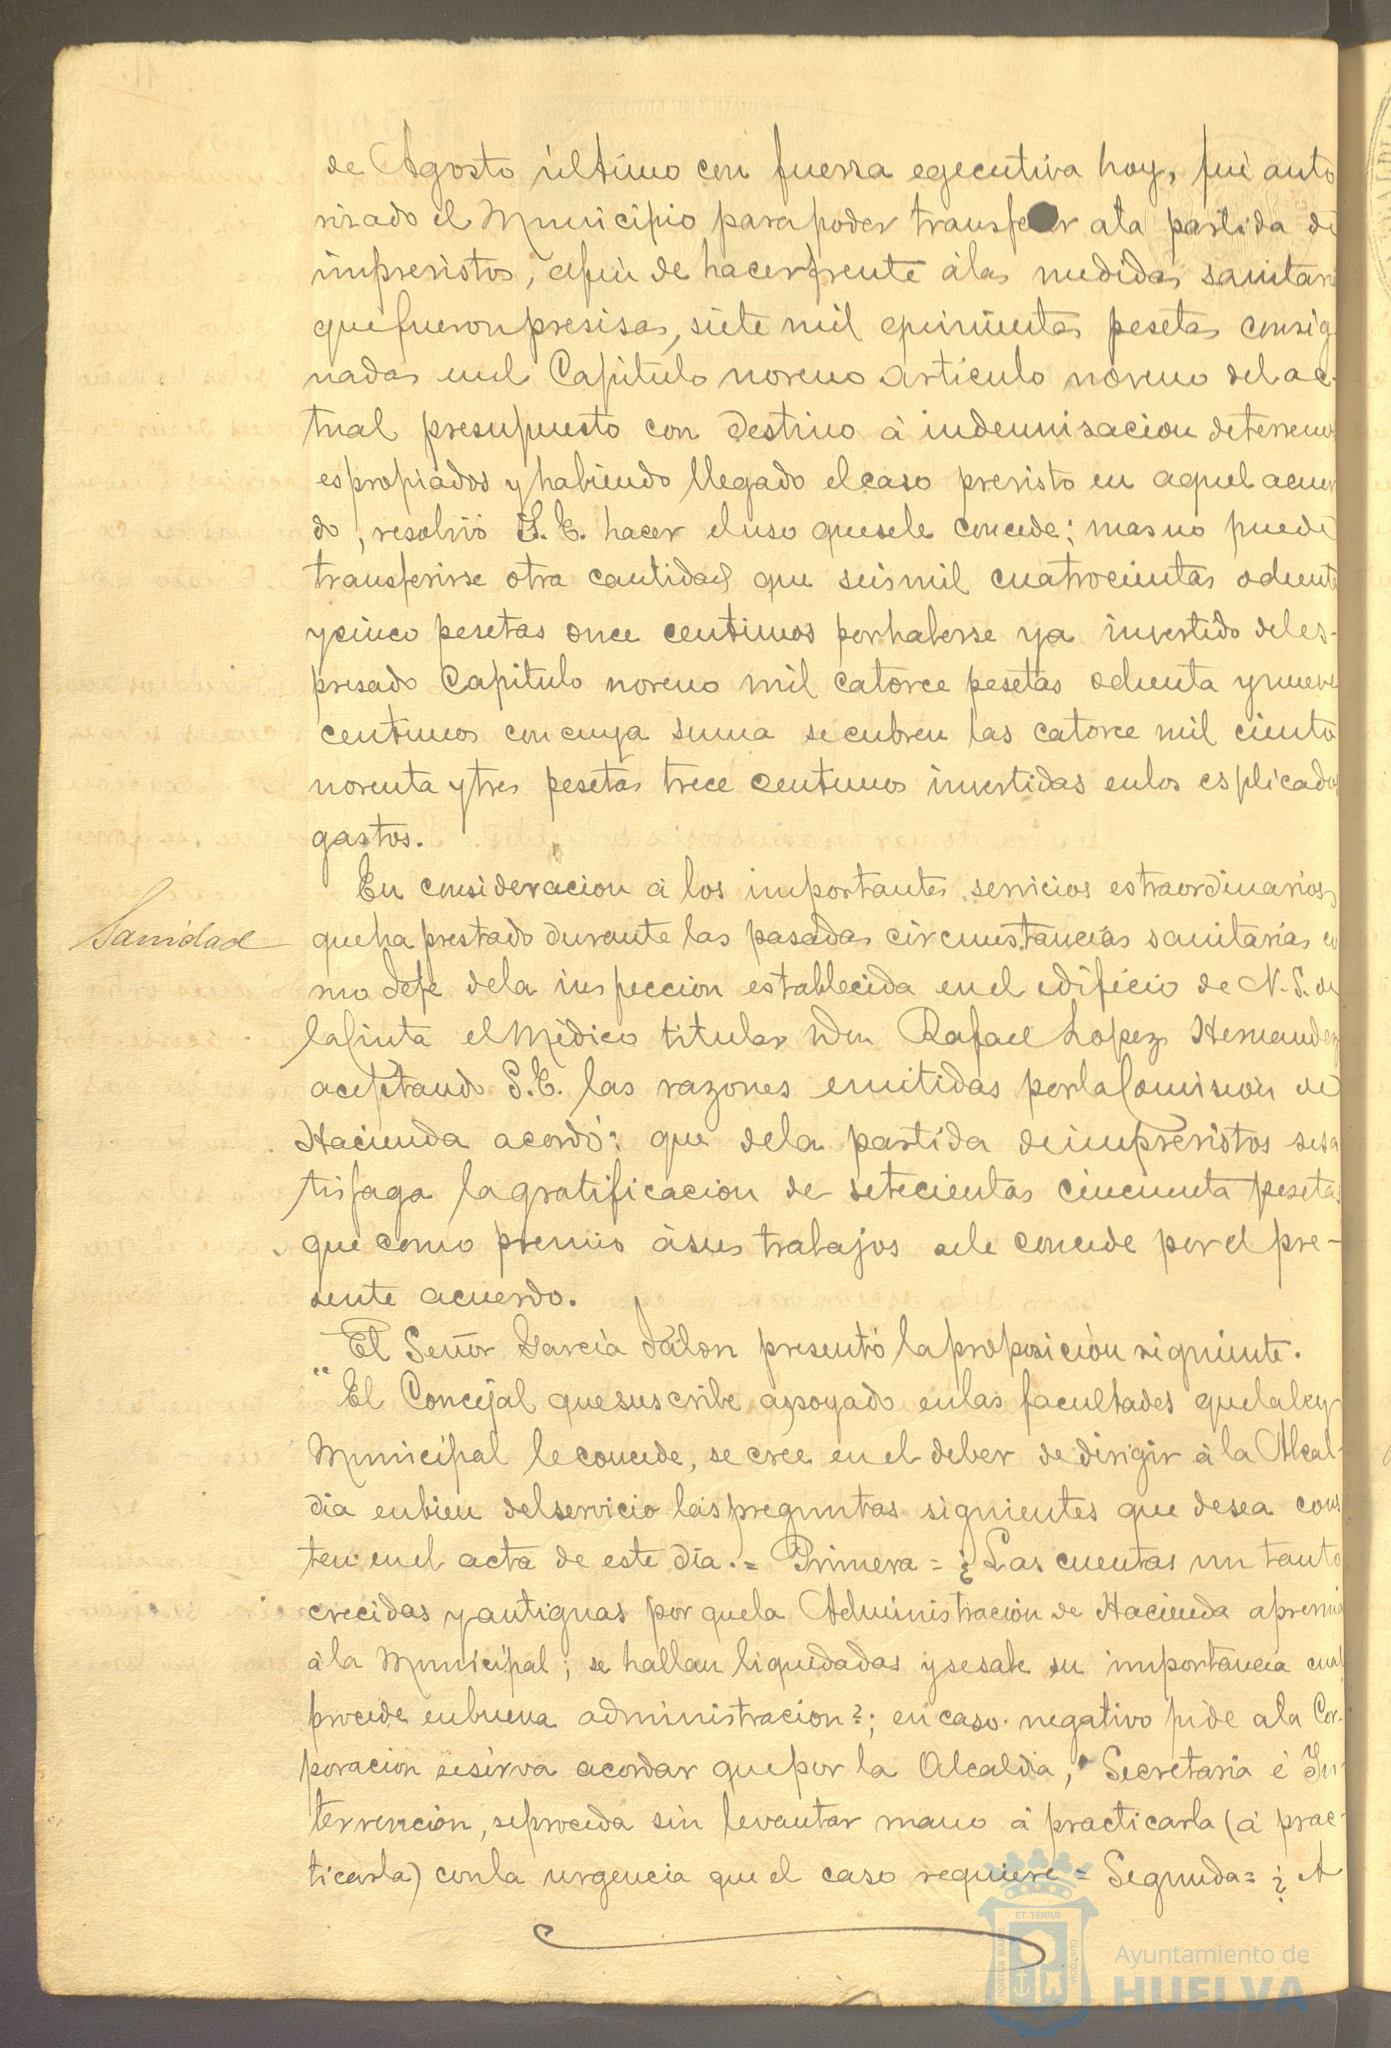 de Agosto último con fuersa egecutiva hoy, fué auto
risado el Municipio para poder transfe r a la partida de
imprevistos, afin de hacer frente á las medidas sanitari
que fueron presisas, siete mil quinientas pesetas consig
nadas en el Capitulo noveno articulo noveno del ac-
tual presupuesto con destino á indemnisacion de terrenos
espropiados y habiendo llegado el caso previsto en aquel acuer
do, resolvió S. E. hacer el uso que se le concede; mas no puede
transferirse otra cantidad que seis mil cuatrocientas ochenta
y cinco pesetas once centimos por haberse ya invertido del es-
presado Capitulo noveno mil catorce pesetas ochenta y nueve
centimos con cuya suma se cubren las catorce mil ciento
noventa y tres pesetas trece centimos invertidas en los esplicados
gastos.
En consideracion á los importantes servicios estraordinarios
Sanidad
que ha prestado durante las pasadas circunstancias sanitarias co
mo Jefe de la inspeccion establecida en el edificio de N. S. de
la Cinta el Médico titular Don Rafael Lopez Hernandez
aceptando S. E. las razones emitidas por la Comision de
Hacienda acordó: que de la partida de imprevistos se sa
tisfaga la gratificacion de setecientas cincuenta pesetas
que como premio á sus trabajos se le concede por el pre-
sente acuerdo.
El Señor Garcia Jalon presentó la proposición siguiente.
" El Concejal que suscribe apoyado en las facultades que la ley
Municipal le concede, se cree en el deber de dirigir á la Alcal-
dia en bien del servicio las preguntas siguientes que desea cons
ten en el acta de este dia.= Primera = ¿Las cuentas un tanto
crecidas y antiguas por que la Administración de Hacienda apremia
á la Municipal; se hallan liquidadas y se sabe su importancia cual
procede en buena administracion?; en caso negativo pide a la Cor-
poracion se sirva acordar que por la Alcaldia, Secretaria é In
tervencion, se proceda sin levantar mano á practicarla (á prac-
ticarla) con la urgencia que el caso requiere = Segunda = ¿ A
Ayuntamiento de
HUELVA